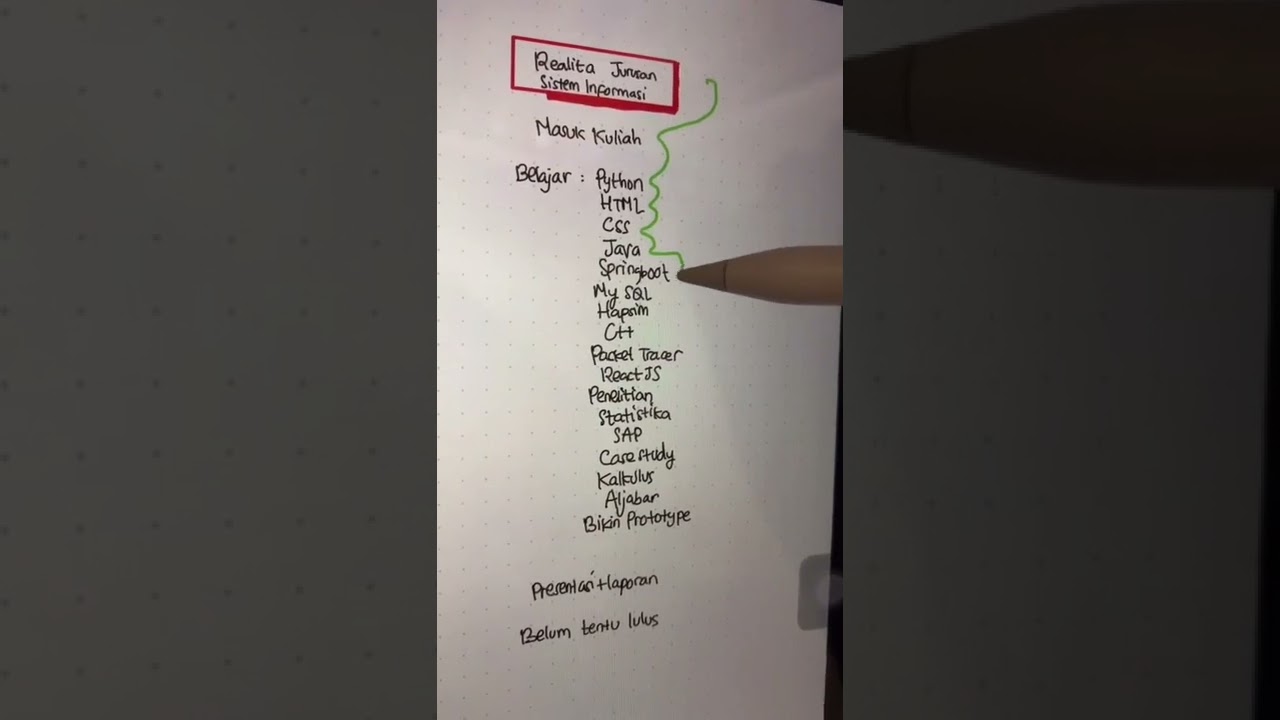 Realita Jurusan
Sistem Informasi
Masuk Kuliah
Belajar : Python
HTML
CSS
Java
Springboot
My SQL
Hapsim
C++
Packet Tracer
React JS
Penelitian
Statistika
SAP
Case study
Kalkulus
Aljabar
Bikin Prototype
Presentasi+laporan
Belum tentu lulus